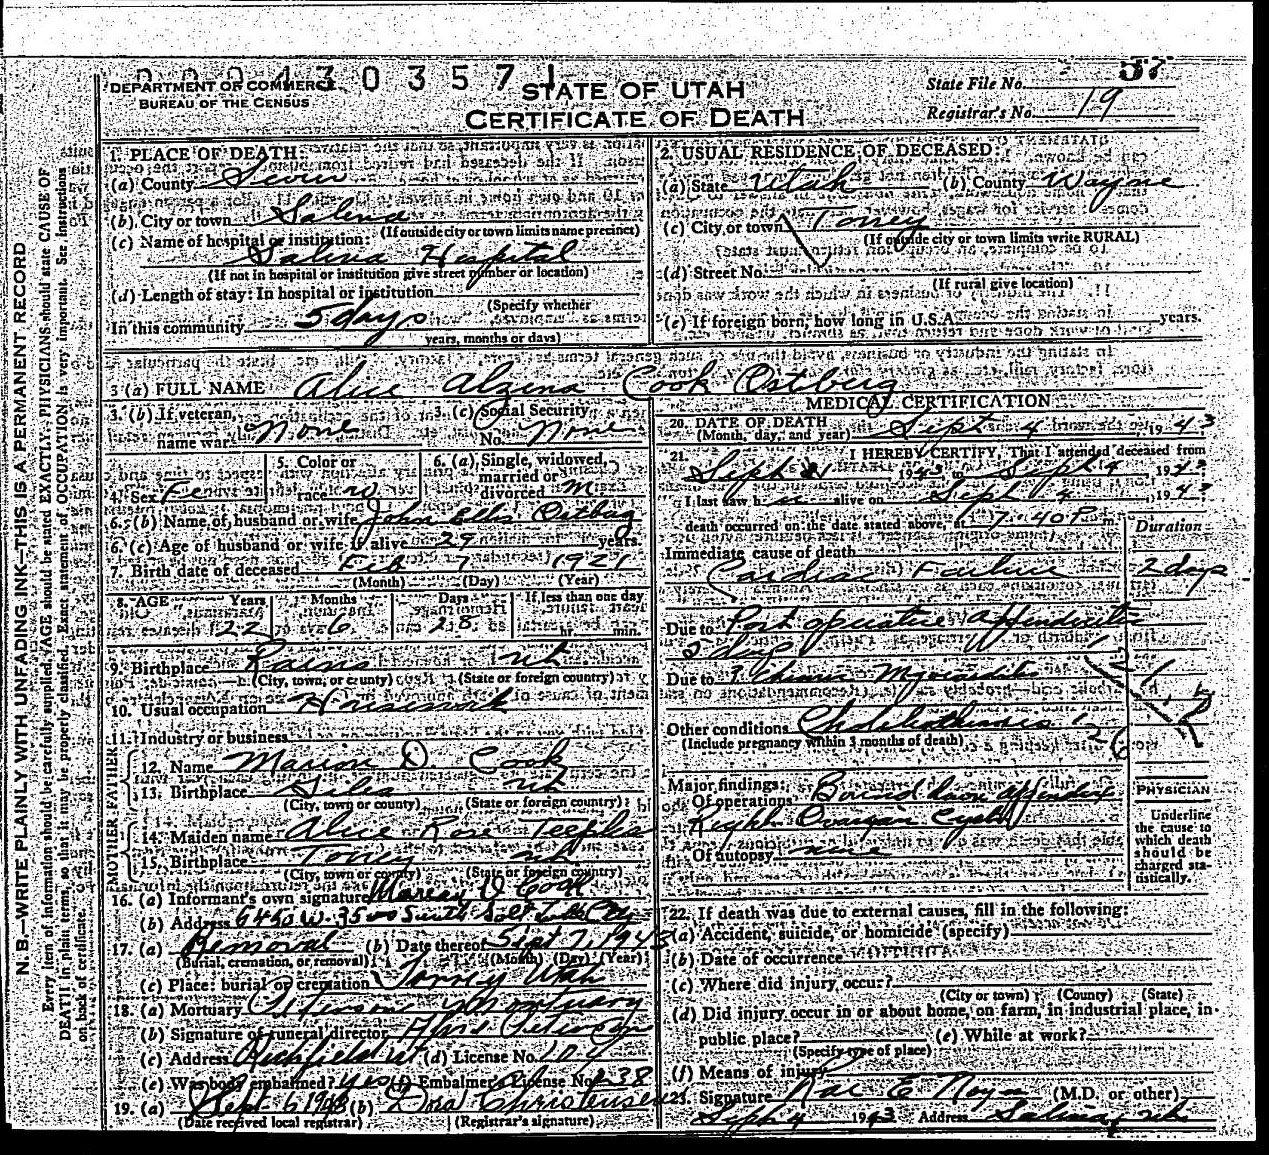 0004303571
DEPARTMENT OF COMMERCE
BUREAU OF THE CENSUS
STATE OF UTAH
CERTIFICATE OF DEATH
State File No. 57
Registrar's No. 19
N. B.—WRITE PLAINLY WITH UNFADING INK—THIS IS A PERMANENT RECORD
Every item of information should be carefully supplied. AGE should be stated EXACTLY. PHYSICIANS should state CAUSE OF
DEATH in plain terms, so that it may be properly classified. Exact statement of OCCUPATION is very important. See instructions
on back of certificate.
1. PLACE OF DEATH:
(a) County Sevier
(b) City or town Salina
(If outside city or town limits name precinct)
(c) Name of hospital or institution:
Salina Hospital
(If not in hospital or institution give street number or location)
(d) Length of stay: In hospital or institution
(Specify whether
In this community 5 days
years, months or days)
2. USUAL RESIDENCE OF DECEASED:
(a) State Utah (b) County Wayne
(c) City or town Torrey
(If outside city or town limits write RURAL)
(d) Street No.
(If rural give location)
(e) If foreign born, how long in U.S.A. years.
3 (a) FULL NAME Alice Alzina Cook Ostberg
3. (b) If veteran, name war None
3. (c) Social Security No. None
4. Sex Fe
5. Color or race w
6. (a) Single, widowed, married or divorced M
6. (b) Name of husband or wife John Ellis Ostberg
6. (c) Age of husband or wife if alive 29 years.
7. Birth date of deceased Feb 7 1921
(Month) (Day) (Year)
8. AGE Years Months Days If less than one day
22 6 28 hr. min.
9. Birthplace Ut
(City, town, or county) (State or foreign country)
10. Usual occupation Housework
11. Industry or business
FATHER
12. Name Marion D. Cook
13. Birthplace Giles Ut
(City, town or county) (State or foreign country)
MOTHER
14. Maiden name Alice Rose Teeples
15. Birthplace Torrey Ut.
(City, town or county) (State or foreign country)
16. (a) Informant's own signature Marion D Cook
(b) Address W. 3500 South Salt Lake City
17. (a) Removal (b) Date thereof Sept 7, 1943
(Burial, cremation, or removal) (Month) (Day) (Year)
(c) Place: burial or cremation Torrey Utah
18. (a) Mortuary Peterson Mortuary
(b) Signature of funeral director Peterson
(c) Address Richfield Ut (d) License No. 104
(e) Was body embalmed? yes (f) Embalmer's License No. 238
19. (a) Sept 6 1943 (b) Dora Christensen
(Date received local registrar) (Registrar's signature)
MEDICAL CERTIFICATION
20. DATE OF DEATH
(Month, day, and year) Sept 4, 1943
21. I HEREBY CERTIFY, That I attended deceased from
Sept 1943 to Sept 4 1943
I last saw her alive on Sept 4, 1943
death occurred on the date stated above, at 7:40 P m.
Duration
Immediate cause of death
Cardiac Failure 2 days
Due to Post operative Appendicitis
2 days
Due to ? Chronic Myocarditis
Other conditions Cholelithiasis
(Include pregnancy within 3 months of death)
Major findings:
Of operations Bound down appendix
Right Ovarian Cyst
Of autopsy none
PHYSICIAN
Underline
the cause to
which death
should be
charged sta-
tistically.
22. If death was due to external causes, fill in the following:
(a) Accident, suicide, or homicide (specify)
(b) Date of occurrence
(c) Where did injury occur?
(City or town) (County) (State)
(d) Did injury occur in or about home, on farm, in industrial place, in
public place? (e) While at work?
(Specify type of place)
(f) Means of injury
23. Signature Rae E Noyes (M.D. or other)
Sept 4 1943 Address Salina, Ut